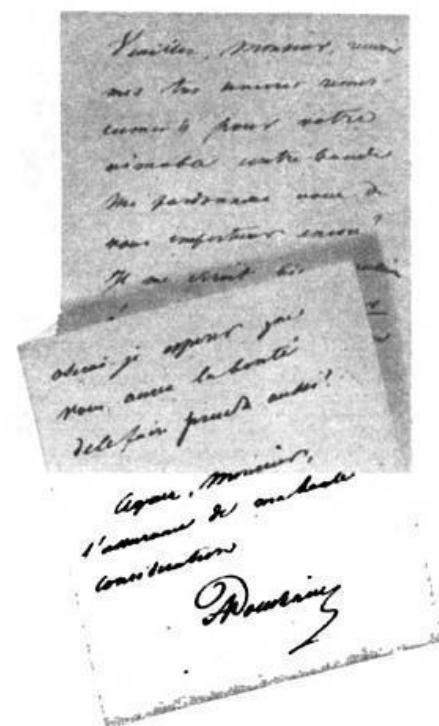 Veuillez, Monsieur, recevoir
mes très sincères remer-
ciements pour votre
aimable contrebande
Me pardonnerez vous de
vous importuner encore?
Il me seroit
oserai je espérer que
vous aurez la bonté
de le faire prendre aussi?
Agréez, Monsieur,
l'assurance de ma haute
considération